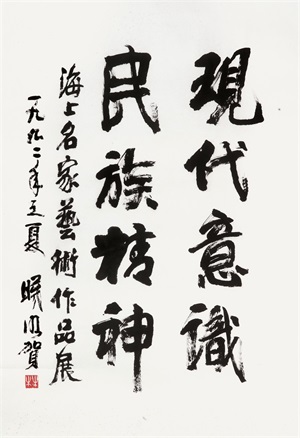 現代意識
民族精神
海上名家藝術作品展
一九九二年立夏 賀